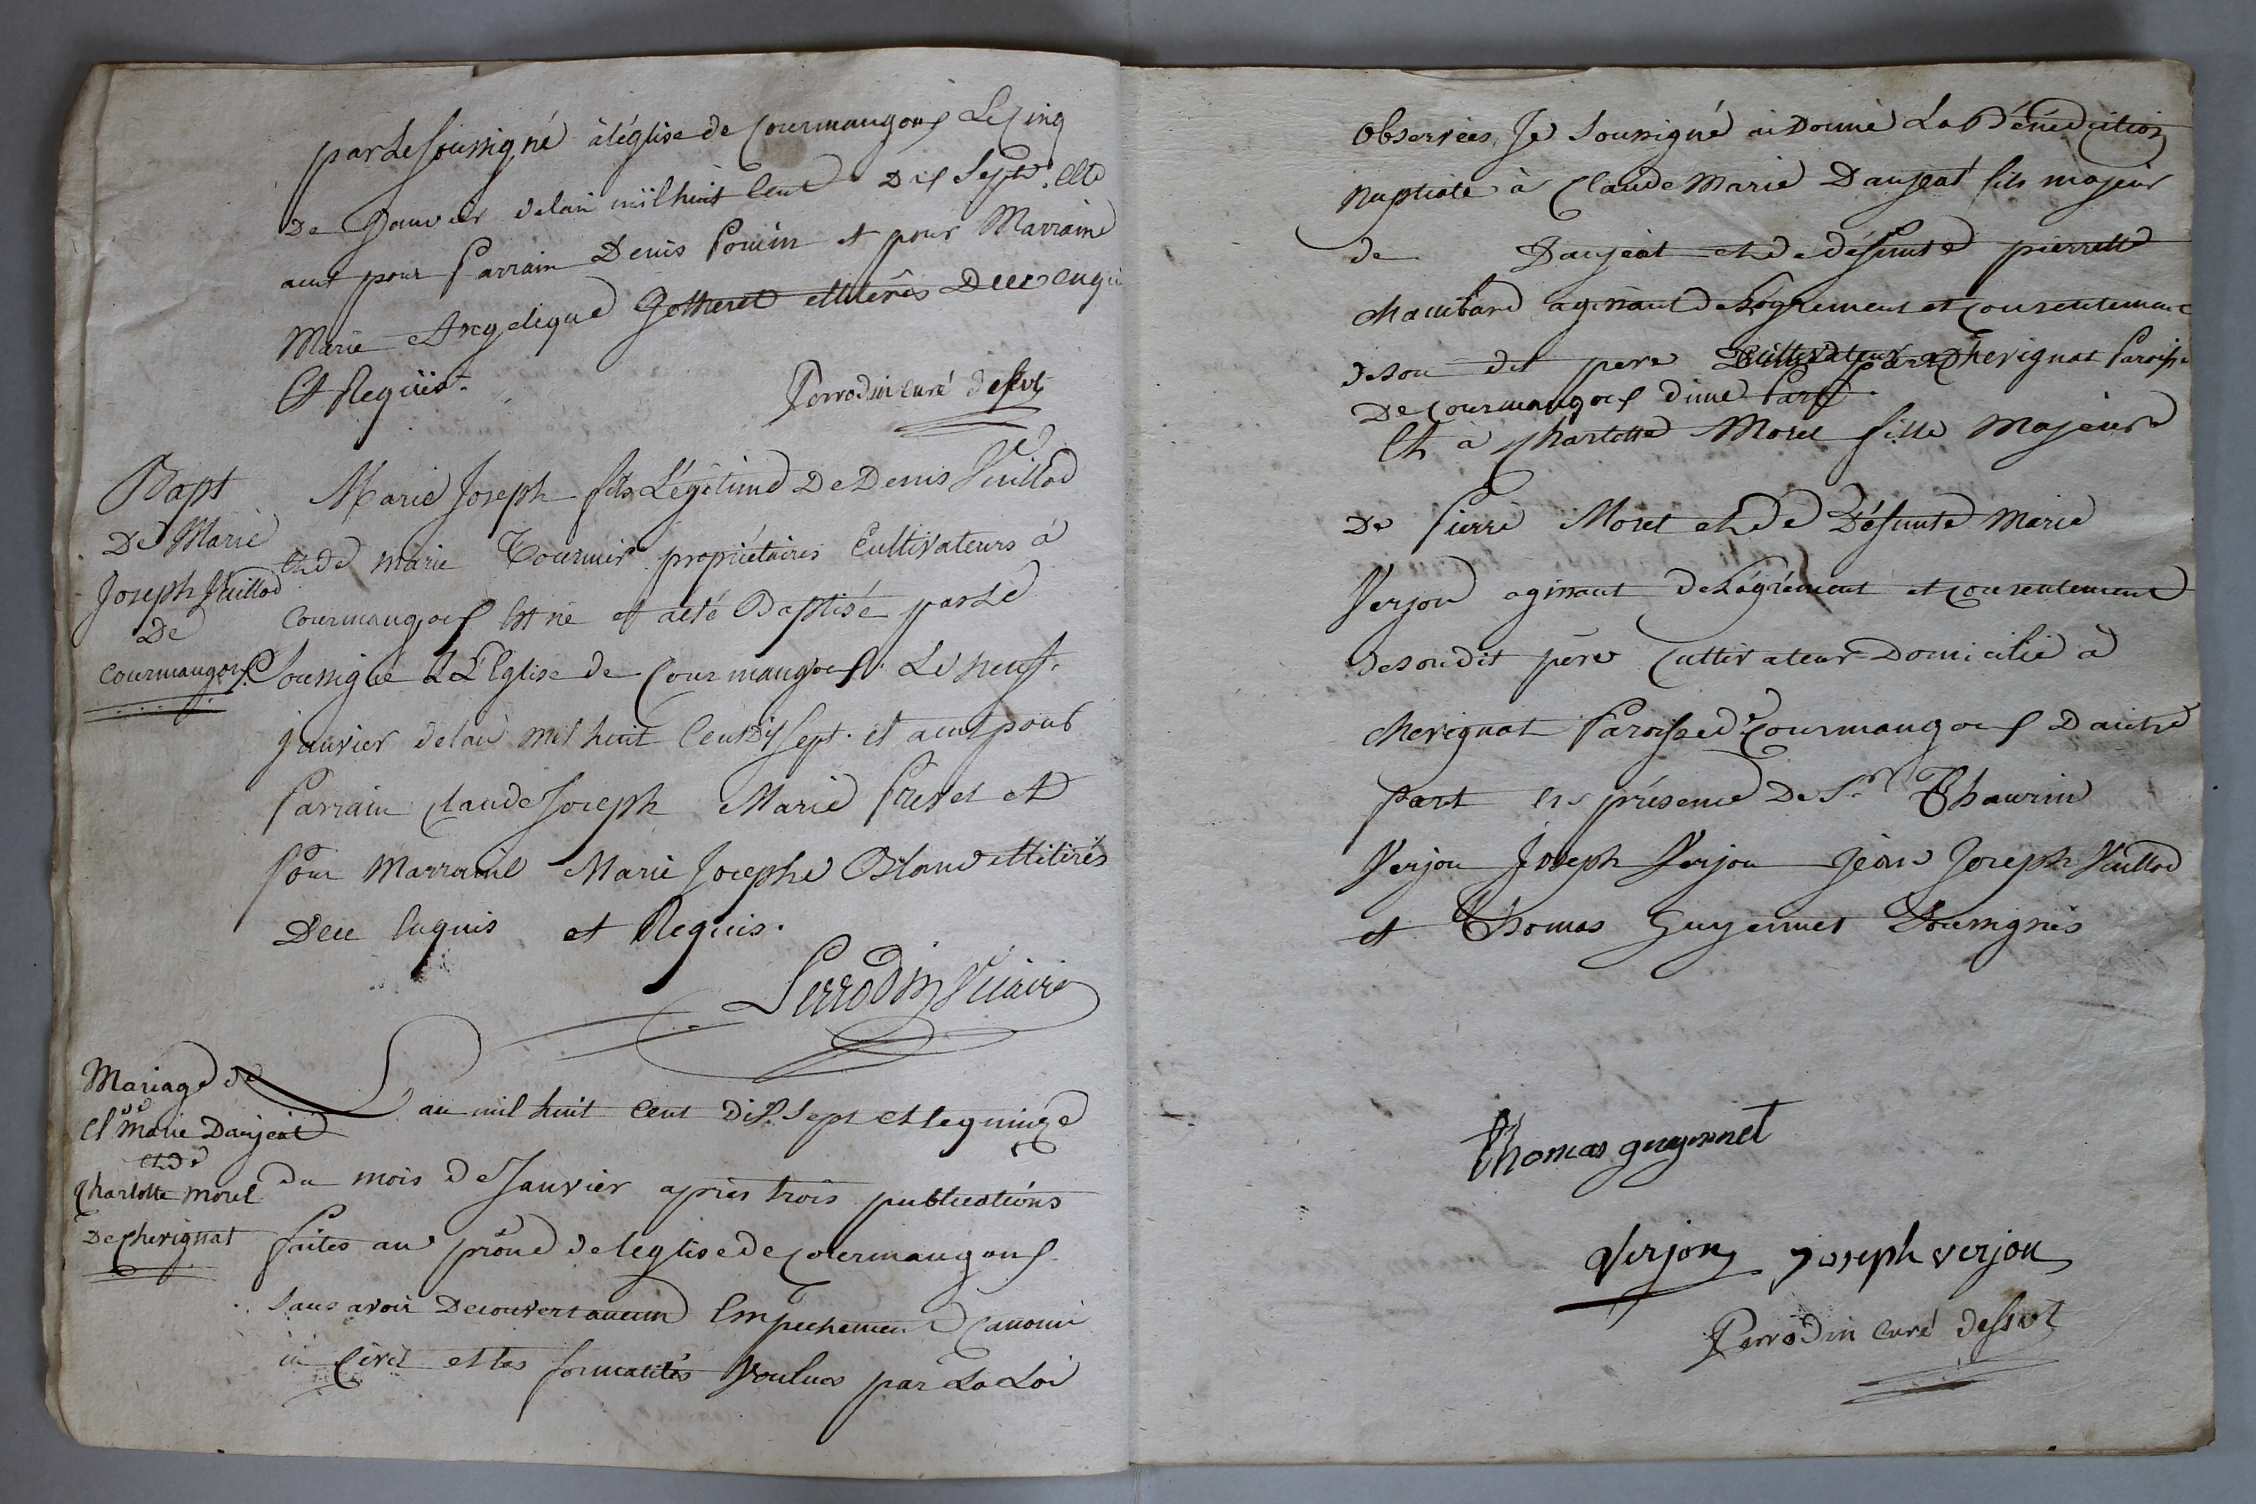 par Le soussigné à l'église de Courmangoux Le Cinq
De Janvier de lan mil huit Cent Dix Sept. Elle
a eut pour Parrain Denis Pouin et pour Marraine
Marie Angelique Gotheret illitérés De ce enqui
Et Requis.
Perrodin curé dessvt
Bapt
De Marie
Joseph Vuillod
De
Courmangoux
Marie Joseph fils Légitime De Denis Vuillod
et de marie Tournier propriétaires Cultivateurs à
Courmangoux Est né et a eté Baptisé par Le
Soussigné à L'Eglise de Courmangoux Le neuf
janvier de lan mil huit Cent Dix Sept. et a eut pour
Parrain Claude Joseph Marie Prevel et
Pour Marraine Marie Josephe Blanc illitirés
De ce Enquis et Requis.
Perrodin Vicaire
Mariage de
Cl de Marie Daujeat
et de
Charlotte morel
De Cherignat
L'an mil huit Cent Dix Sept et le quinze
du mois de Janvier après trois publications
faites au prône de leglise de Courmangoux
Sans avoir Decouvert aucun Empechement Canoni
ni Civil et les formalités Voulues par La Loi
Observées, Je Soussigné ai Donné La Bénédiction
Nuptiale à Claude Marie Daujeat fils majeur
de Daujeat et de défunte pierrette
Chambard agissant de L'agrement et consentement
de son dit pere Cultivateur a Cherignat Paroisse
De Courmangoux d'une Part
Et à Charlotte Morel fille Majeure
De Pierre Morel et de Défunte Marie
Verjon agissant de L'agrément et consentement
de son dit père Cultivateur Domicilié à
Cherignat Paroisse de Courmangoux D'autre
Part En présence De Sr. Thaurin
Verjon Joseph Verjon Jean Joseph Vuillod
et Thomas Guyennet Soussignés
Thomas guyennet
Verjon joseph verjon
Perrodin curé dessvt